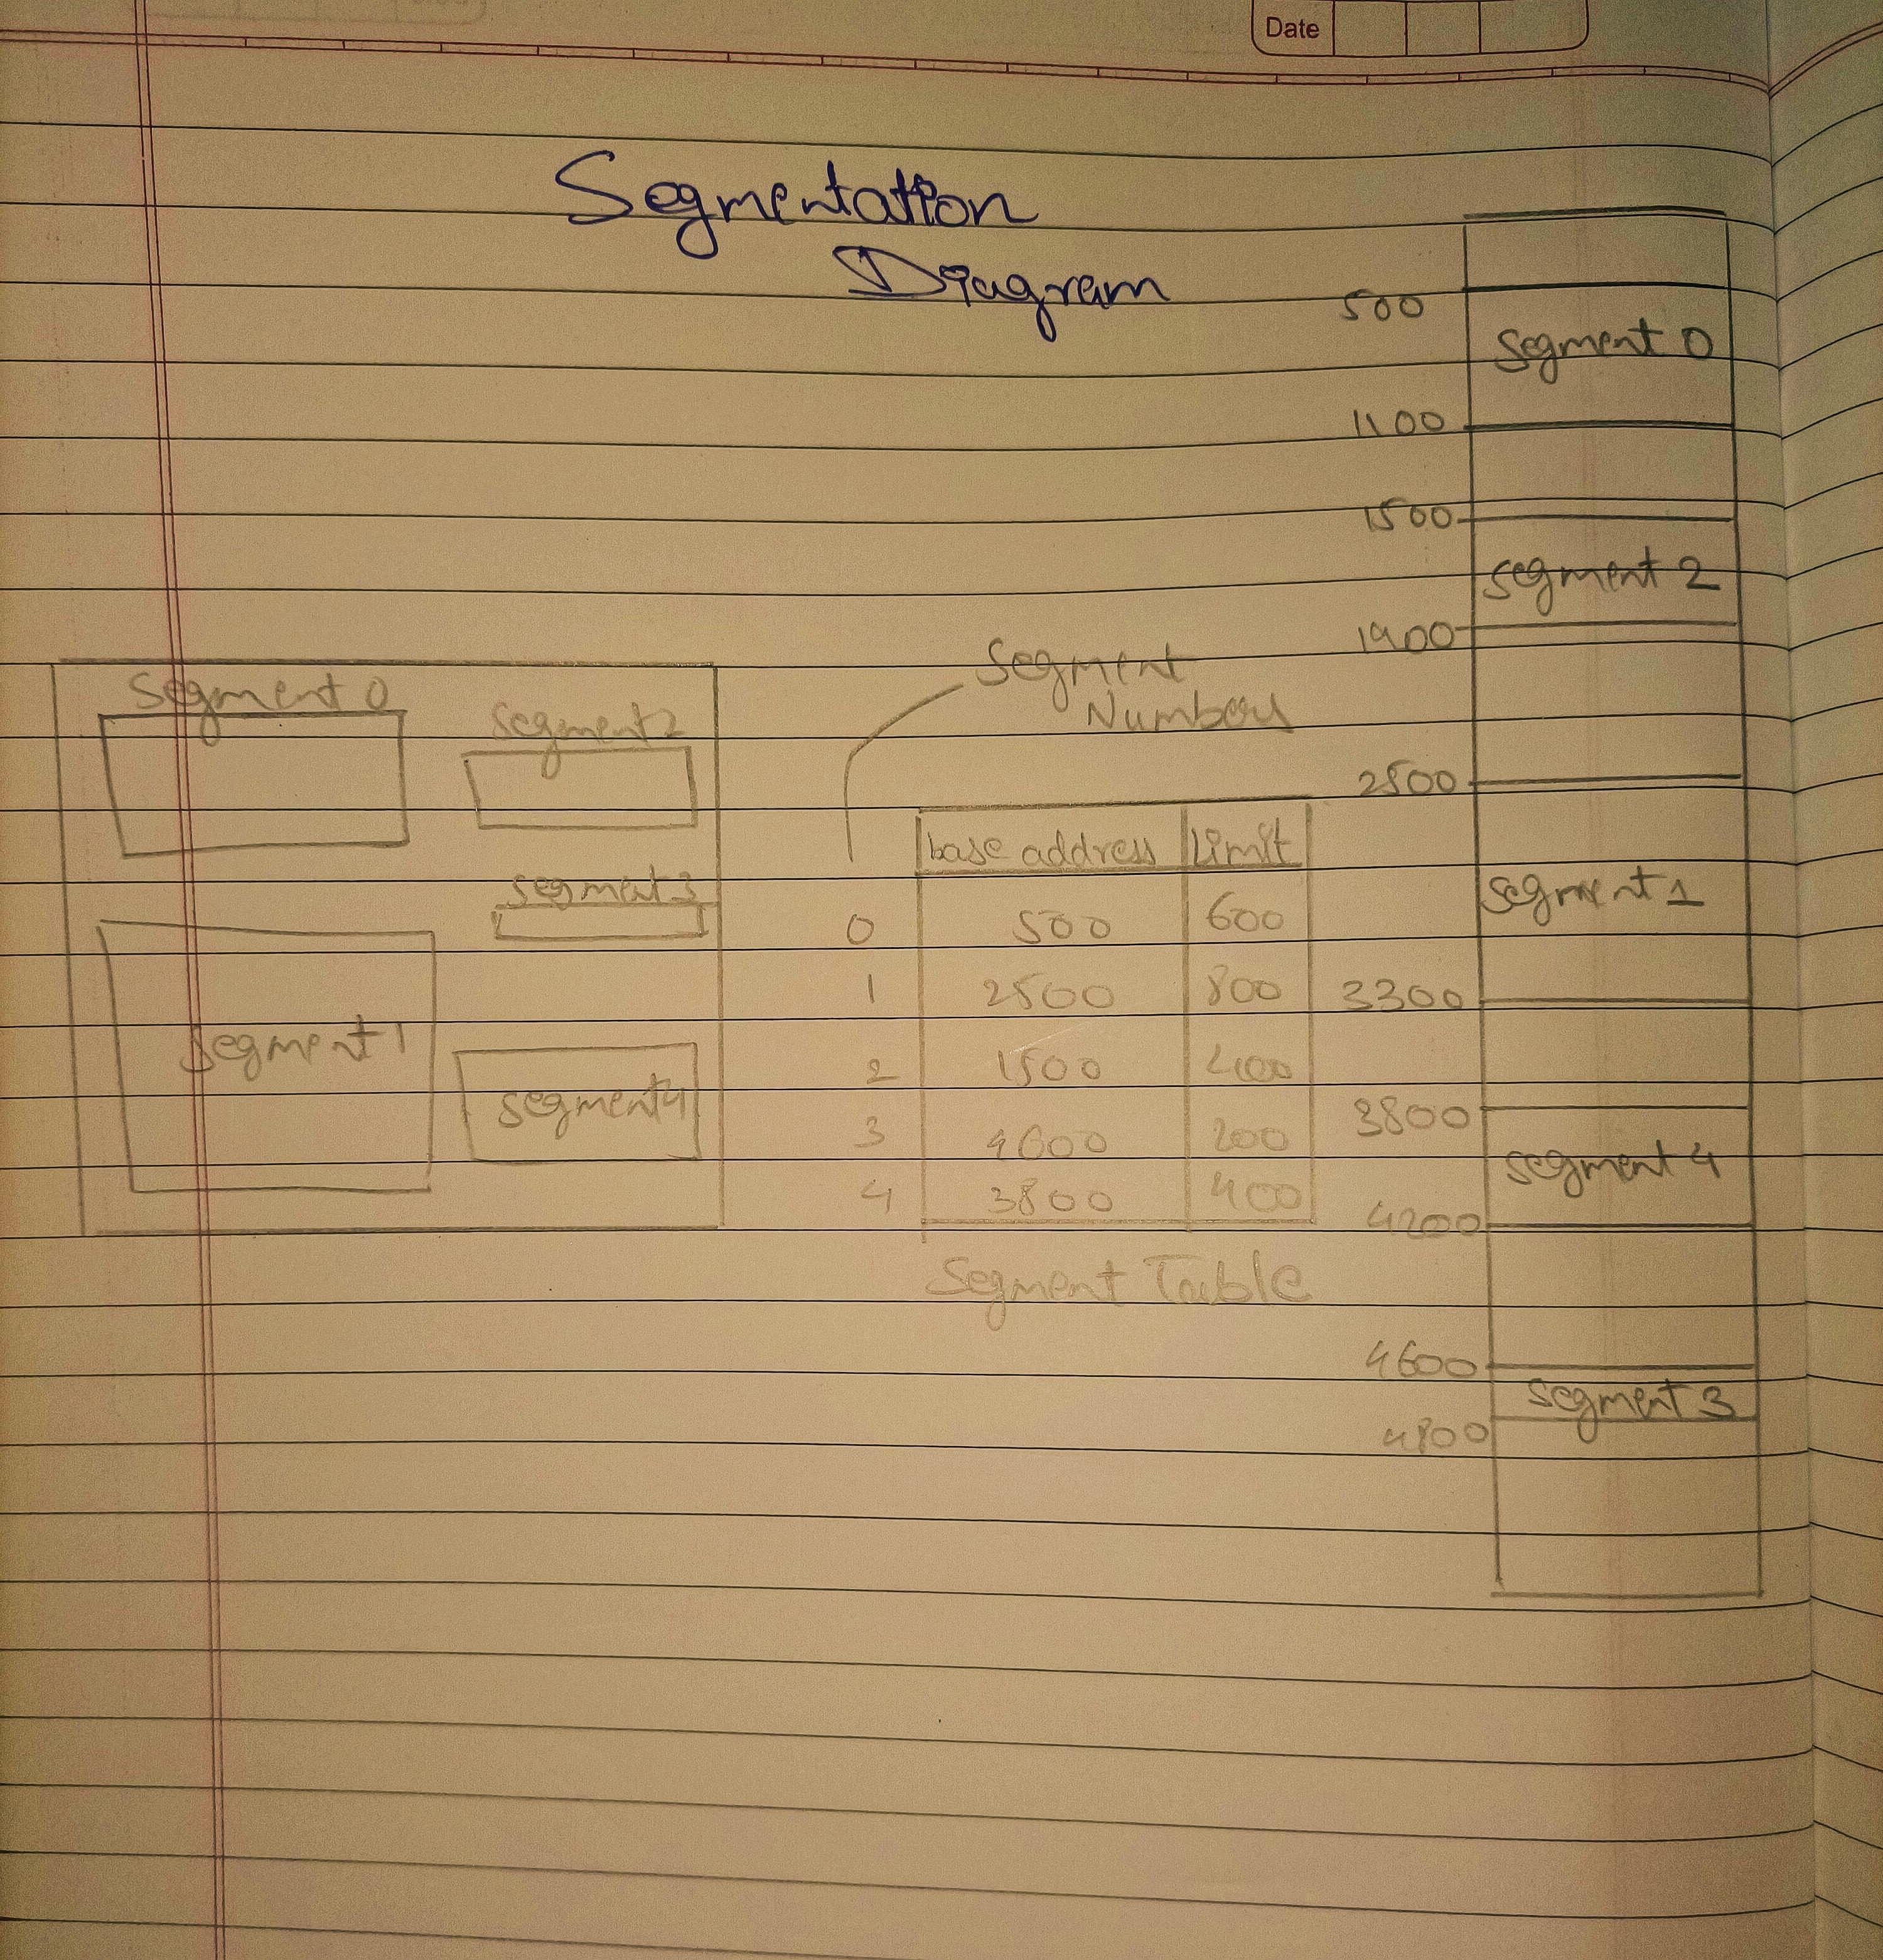 Date
Segmentation
Diagram
500
Segment 0
1100
1500
segment 2
1900
2500
segment 1
3300
3800
segment 4
4200
4600
segment 3
4800
Segment 0
Segment 2
segment 3
segment 1
segment 4
Segment
Numbers
base address Limit
0 500 600
1 2500 800
2 1500 400
3 4600 200
4 3800 400
Segment Table